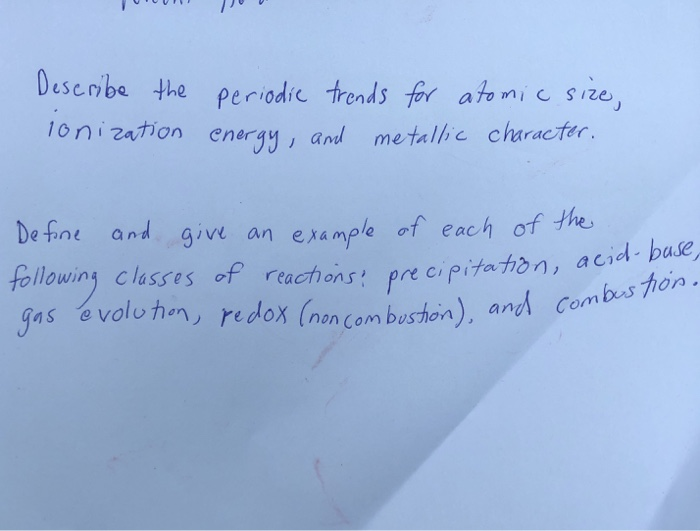 Describe the periodic trends for atomic size,
ionization energy, and metallic character.
Define and give an example of each of the
following classes of reactions: precipitation, acid-base,
gas evolution, redox (noncombustion), and combustion.